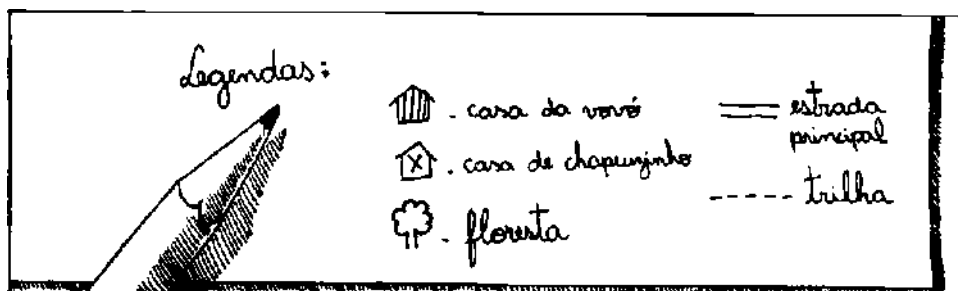 Legendas:
. casa da vovó
X . casa de chapeuzinho
. floresta
estrada
principal
trilha